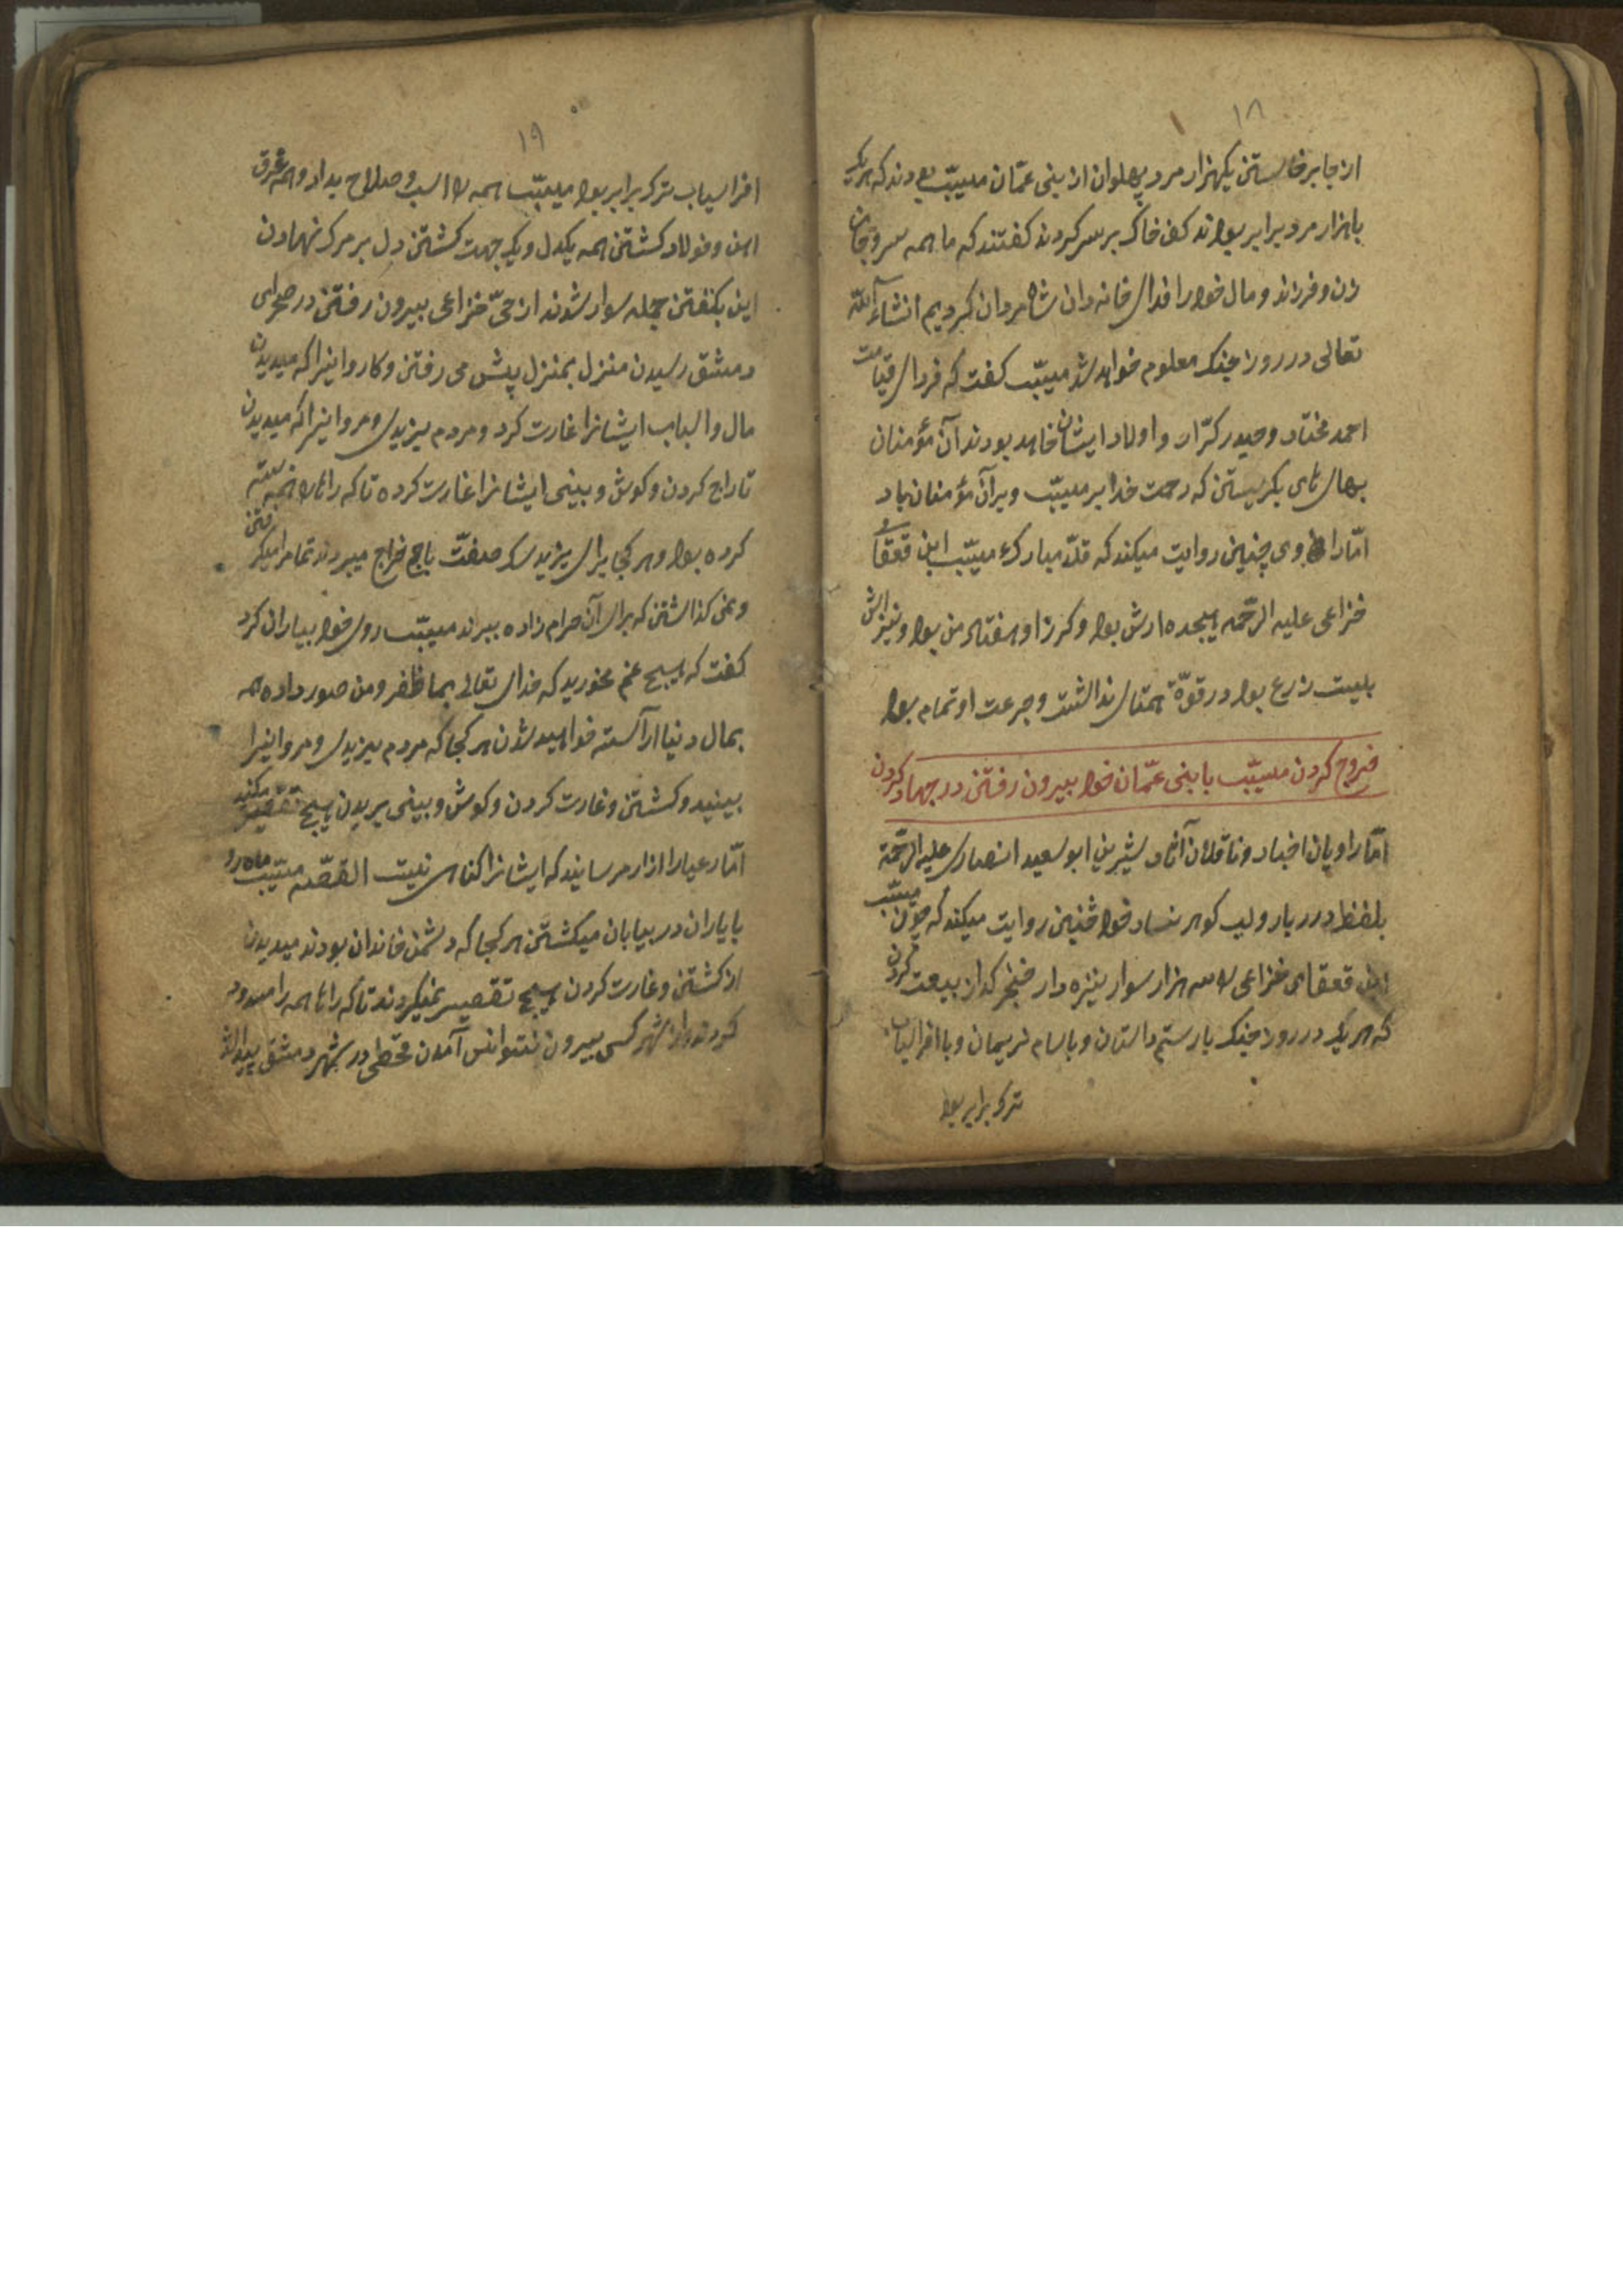 ۱۸
از جا برخاستن یکهزار مرد پهلوان از بنی عمّان مسیّب بودند که هر یک
با هزار مرد برابر بودند کف خاک بر سر کردند کفتند که ما همه سر و جان
زن و فرزند و مال خود را فدای خانه دان شاه مردان کردیم انشاءاللّه
تعالی در روز جنک معلوم خواهد شد مسیّب کفت که فردای قیامت
احمد مختار و حیدر کرّار و اولاد ایشان خاهد بودند آن مؤمنان
بهای های بکریستن که رحمت خدا بر مسیّب و بر آن مؤمنان باد
امّا راوی چنین روایت میکند که قدّ مبارکء مسیّب ابن قعقای
خزاعی علیه الرّحمه هیجده ارش بود و کرز او هفتاد من بود و نیزاش
بیست زرع بود در قوّة همتای نداشت و جرعت او تمام بود
خروج کردن مسیّب با بنی عمّان خود بیرون رفتن در جهاد کردن
امّا راویان اخبار و ناقلان آثار شیرین ابو سعید انصاری علیه الرّحمة
بلفظ درر بار و لب کوهر نساد خود چنین روایت میکند که چون مسیّب
ابن قعقای خزاعی را سه هزار سوار نیزه دار خنجر کدار بیعت کردن
که هر یک در روز جنک با رستم داستان و با سام نریمان و با افراسیاب
ترک برابر بود
۱۹
افراسیاب ترک برابر بود مسیّب همه را اسب و صلاح بداد و همه غرق
اهن و فولاد کشتن همه یکدل و یک جهت کشتن دل بر مرک نهادن
این بکفتن جمله سوار شوند از حیّ خزاعی بیرون رفتن در صحرای
دمشق رسیدن منزل بمنزل پیش می رفتن و کاروانیرا که میدیدن
مال و اسباب ایشانرا غارت کرد و مردم یزیدی و مروانیرا که میدیدن
تاراج کردن و کوش و بینی ایشانرا غارت کرده تا که راهها را همه بسته
کرده بود و هر کجا برای یزید سک صفت باج خراج میبردند تمام را میکرفتن
و نمی کذاشتن که برای آن حرام زاده ببرند مسیّب روی خود بیاران کرد
کفت که هیچ غم مخورید که خدای تعالی بما ظفر و من صور داده همه
بمال دنیا آراسته خواهید شدن هر کجا که مردم یزیدی و مروانیرا
ببینید و کشتن و غارت کردن و کوش و بینی بریدن هیچ تقصیر مکنید
امّا رعیا را ازار مرسانید که ایشانرا کناهی نیست القصّه مسیّب ماه رو
با یاران در بیابان میکشتن هر کجا که دشمن خاندان بودند میدیدن
از کشتن و غارت کردن هیچ تقصیر نمیکردند تا که راهها همه را مسدود
کردند و از شهر کسی بیرون نتوانس آمدن قحطی در شهر دمشق